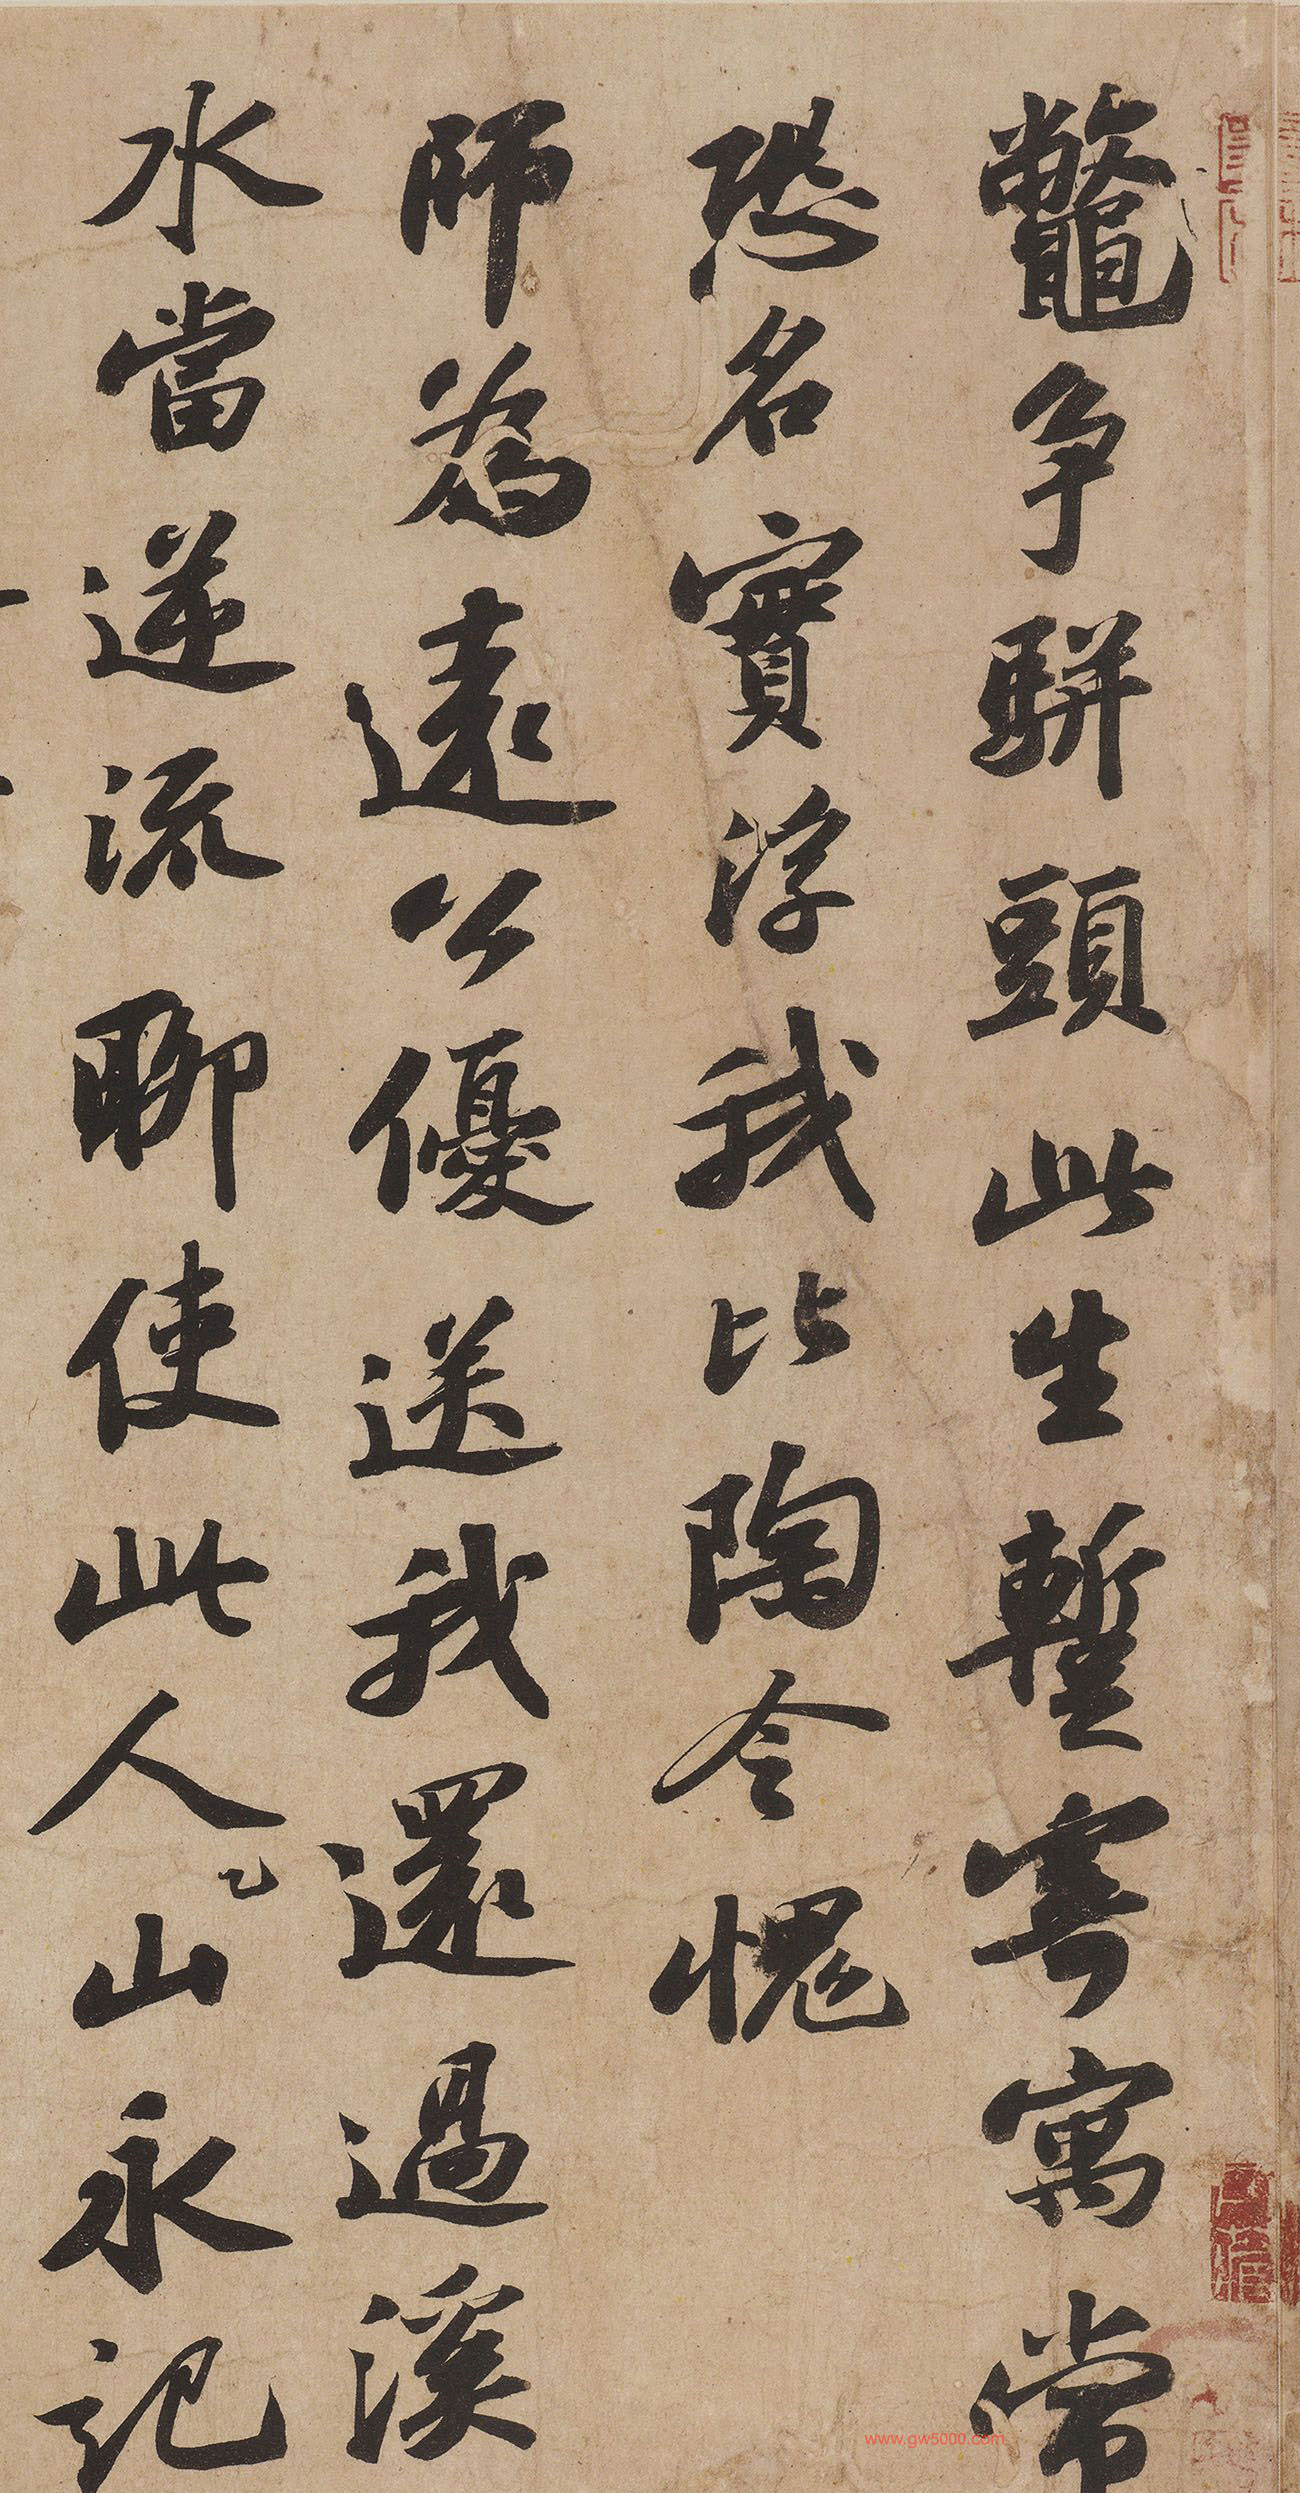 鼈争駢頭此生暫寄寓常
恐名實浮我比陶令愧
師為遠公優送我還過溪
水當逆流聊使此人山永記
www.gw5000.com